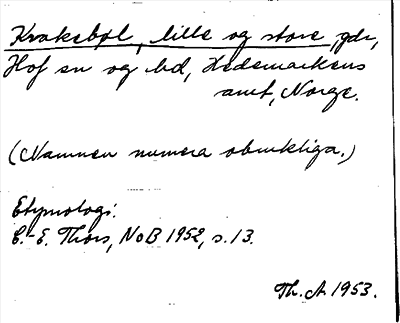 Krokebøl, lille og store, gdr,
Hof sn og hd, Hedemarkens
amt, Norge.
(Namnen numera obrukliga.)
Etymologi:
C.-E. Thors, NoB 1952, s. 13.
Th. A 1953.